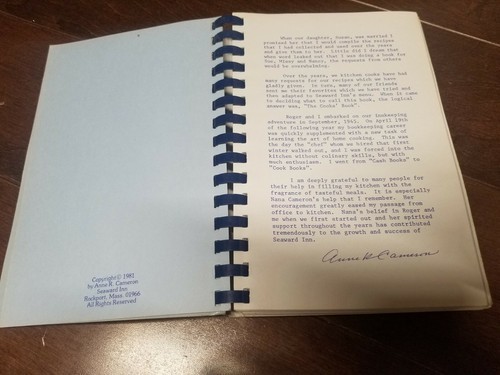 Copyright© 1981
by Anne R. Cameron
Seaward Inn
Rockport, Mass. 01966
All Rights Reserved
When our daughter, Susan, was married I
promised her that I would compile the recipes
that I had collected and used over the years
and give them to her. Little did I dream that
when word leaked out that I was doing a book for
Sue, Missy and Nancy, the requests from others
would be overwhelming.
Over the years, we kitchen cooks have had
many requests for our recipes which we have
gladly given. In turn, many of our friends
sent us their favorites which we have tried and
then adapted to Seaward Inn's menu. When it came
to deciding what to call this book, the logical
answer was, "The Cooks' Book".
Roger and I embarked on our innkeeping
adventure in September, 1945. On April 19th
of the following year my bookkeeping career
was quickly supplemented with a new task of
learning the art of home cooking. This was
the day the "chef" whom we hired that first
winter walked out, and I was forced into the
kitchen without culinary skills, but with
much enthusiasm. I went from "Cash Books" to
"Cook Books".
I am deeply grateful to many people for
their help in filling my kitchen with the
fragrance of tasteful meals. It is especially
Nana Cameron's help that I remember. Her
encouragement greatly eased my passage from
office to kitchen. Nana's belief in Roger and
me when we first started out and her spirited
support throughout the years has contributed
tremendously to the growth and success of
Seaward Inn.
Anne R Cameron